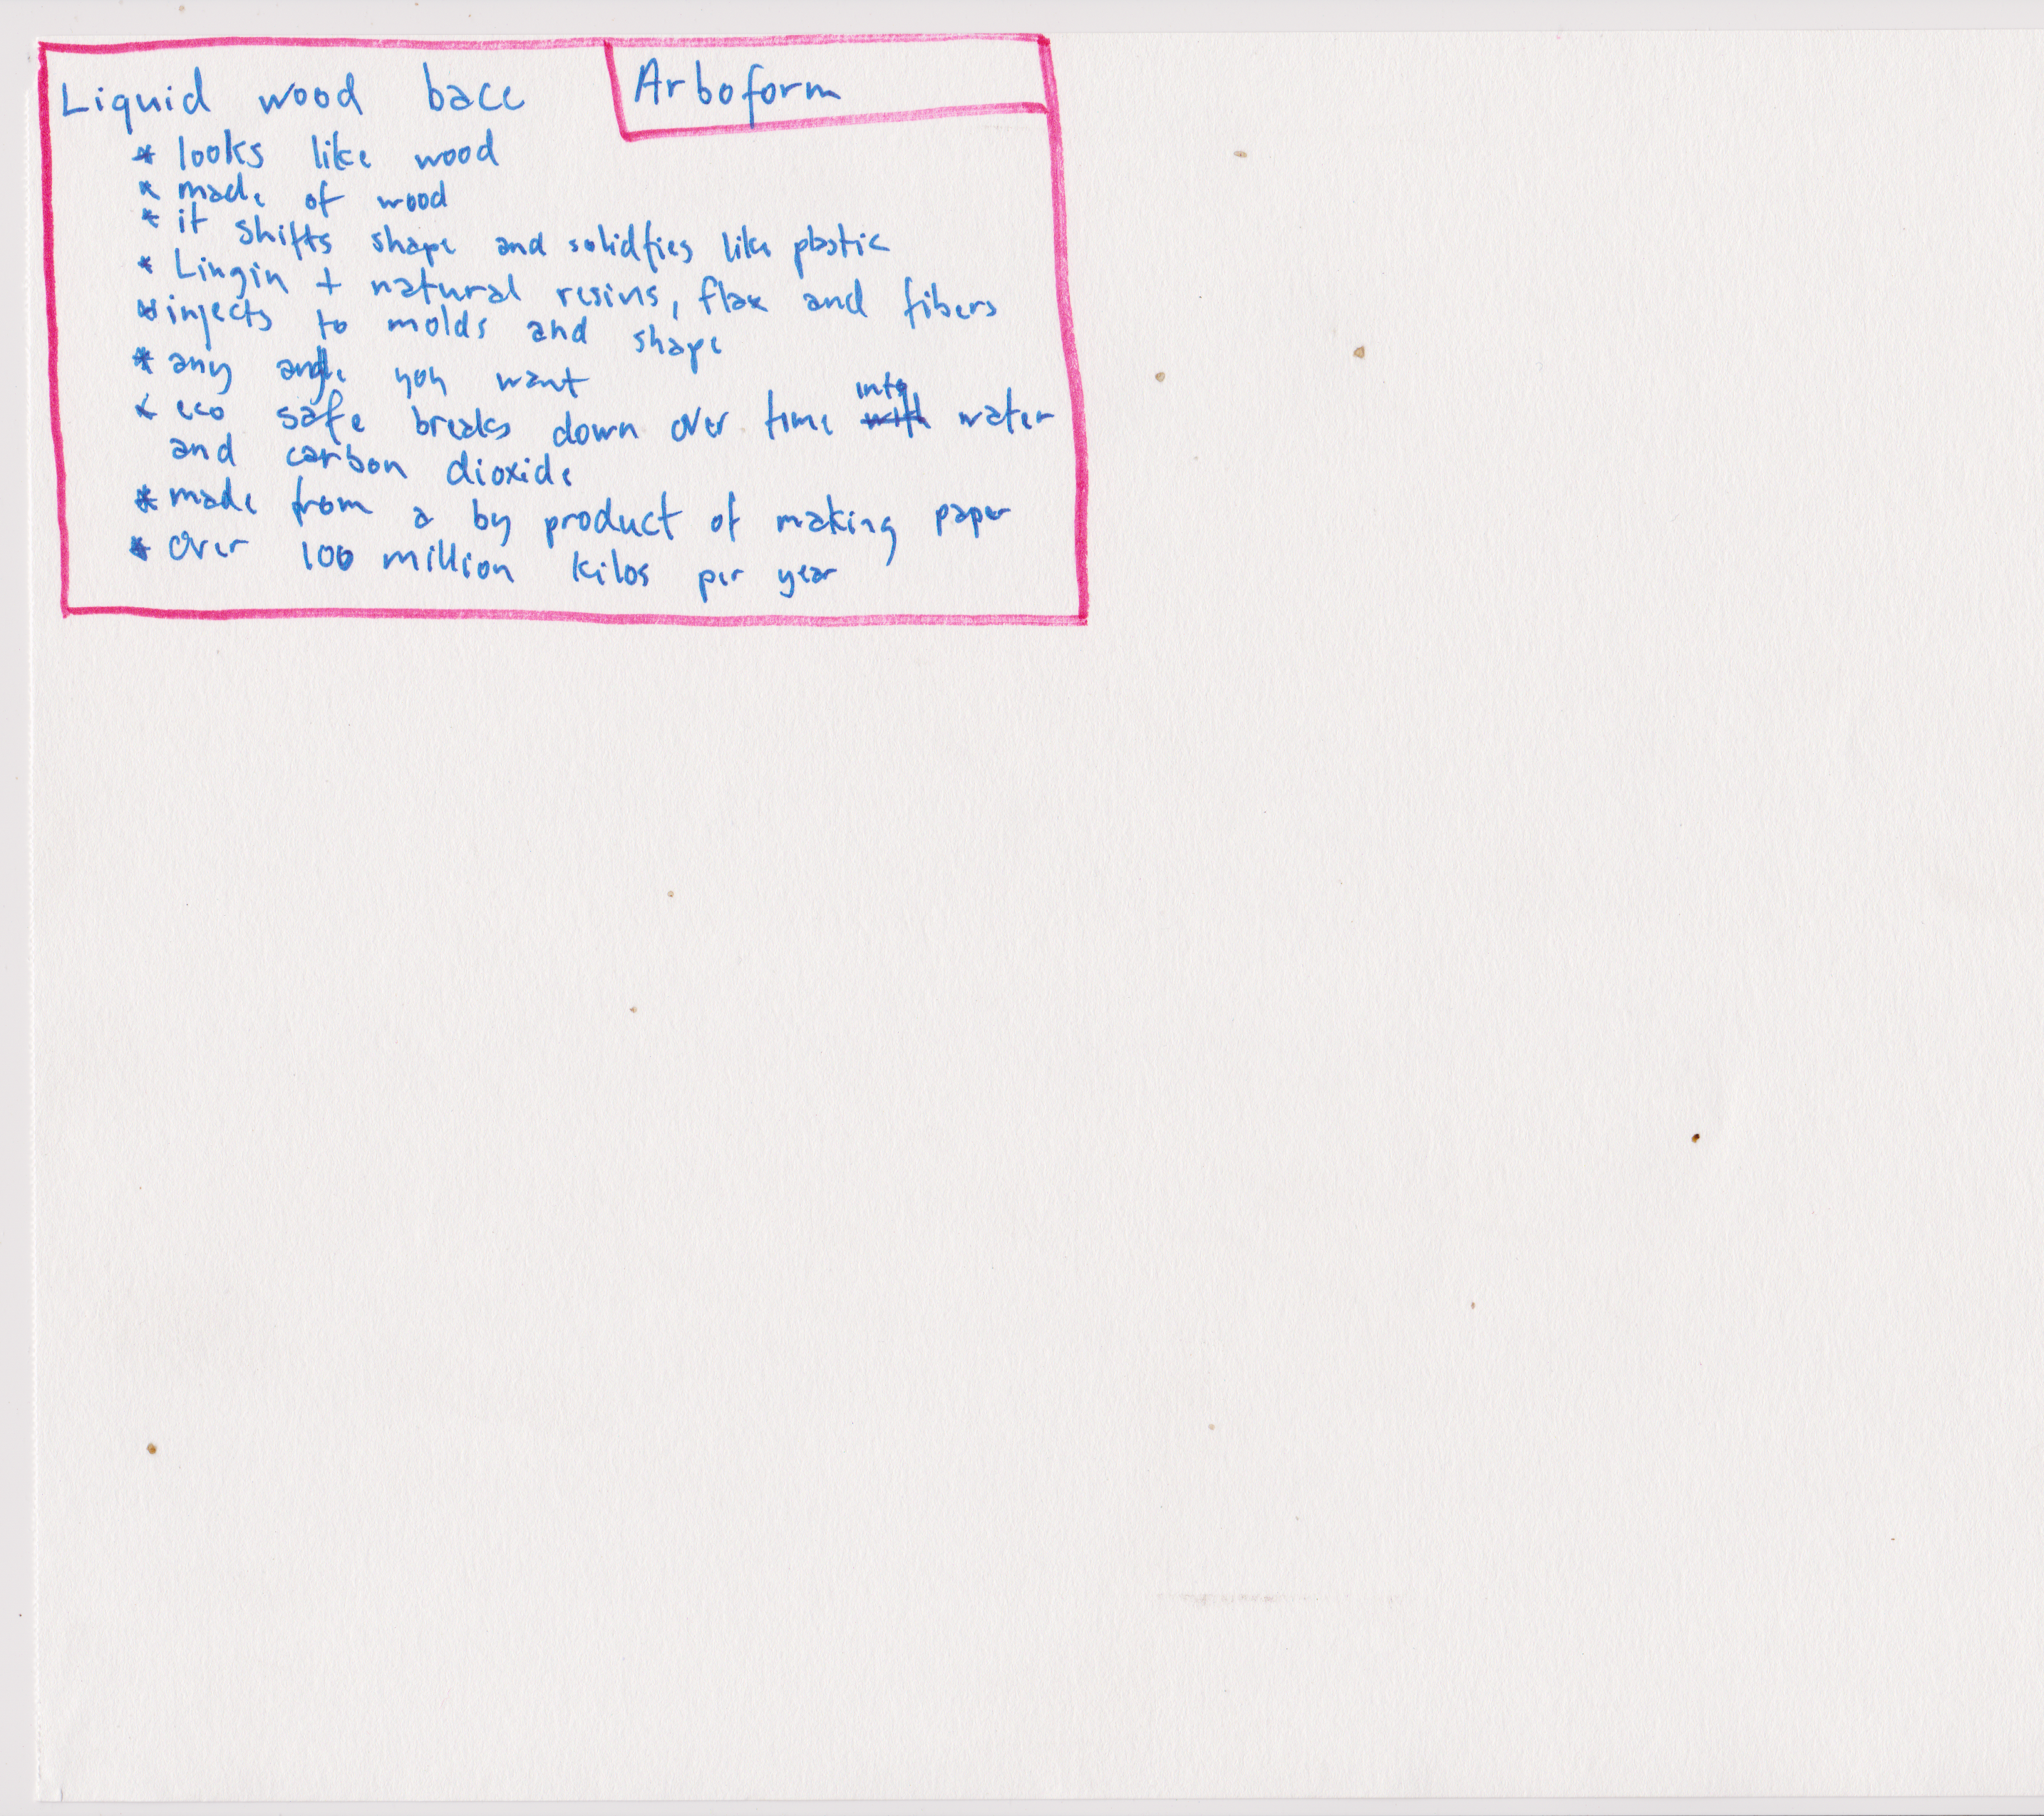 Liquid wood bace
Arboform
* looks like wood
* made of wood
* it shifts shape and solidfies like plastic
* Lingin + natural resins, flax and fibers
* injects to molds and shape
* any angle you want
* eco safe breaks down over time into with water
and carbon dioxide
* made from a by product of making paper
* over 100 million kilos per year